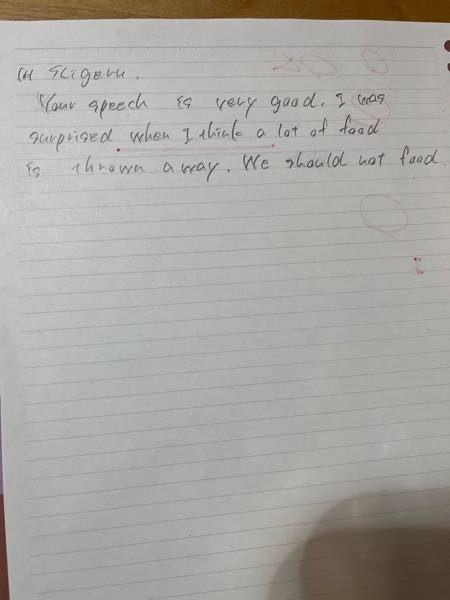 Your speech is very good. I was
surprised when I think a lot of food
is thrown away. We should not food.